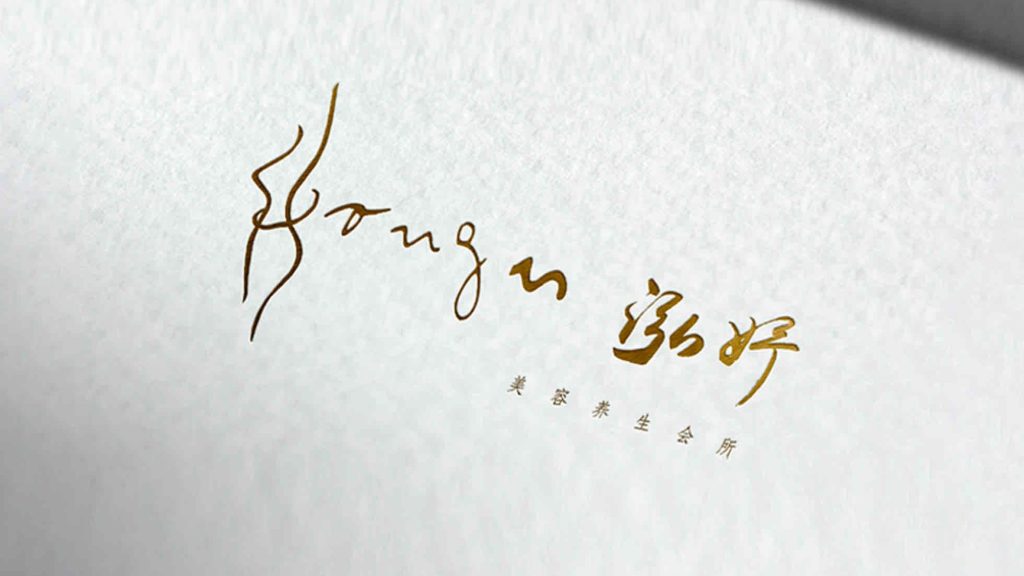 Hongn 泓妤
美容养生会所